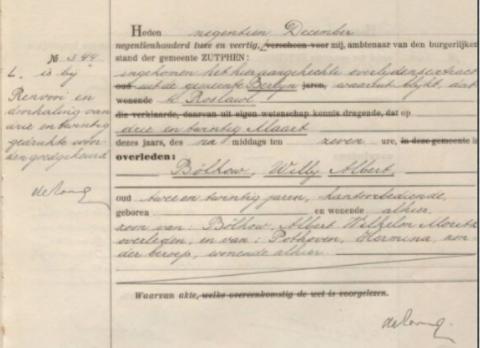 Heden negentien December
negentienhonderd twee en veertig, verscheen voor mij, ambtenaar van den burgerlijken
stand der gemeente ZUTPHEN:
ingekomen het hieraangehechte overlijdensextract
oud uit de gemeente Berlyn jaren, waaruit blijkt, dat
wonende te Roslawl
die verklaarde, daarvan uit eigen wetenschap kennis dragende, dat op
drie en twintig Maart
dezes jaars, des na middags ten zeven ure, in deze gemeente is
overleden:
Bölhow, Willy Albert,
oud twee en twintig jaren, kantoorbediende,
geboren en wonende alhier,
zoon van: Bölhow, Albert Wilhelm Moritz
overleden, en van: Pothoven, Hermina, zon
der beroep, wonende alhier.
Waarvan akte, welke overeenkomstig de wet is voorgelezen.
de Jong
№ 344
L. is bij
Renvooi en
doorhaling van
drie en twintig
gedrukte woor
den goedgekeurd
de Jong